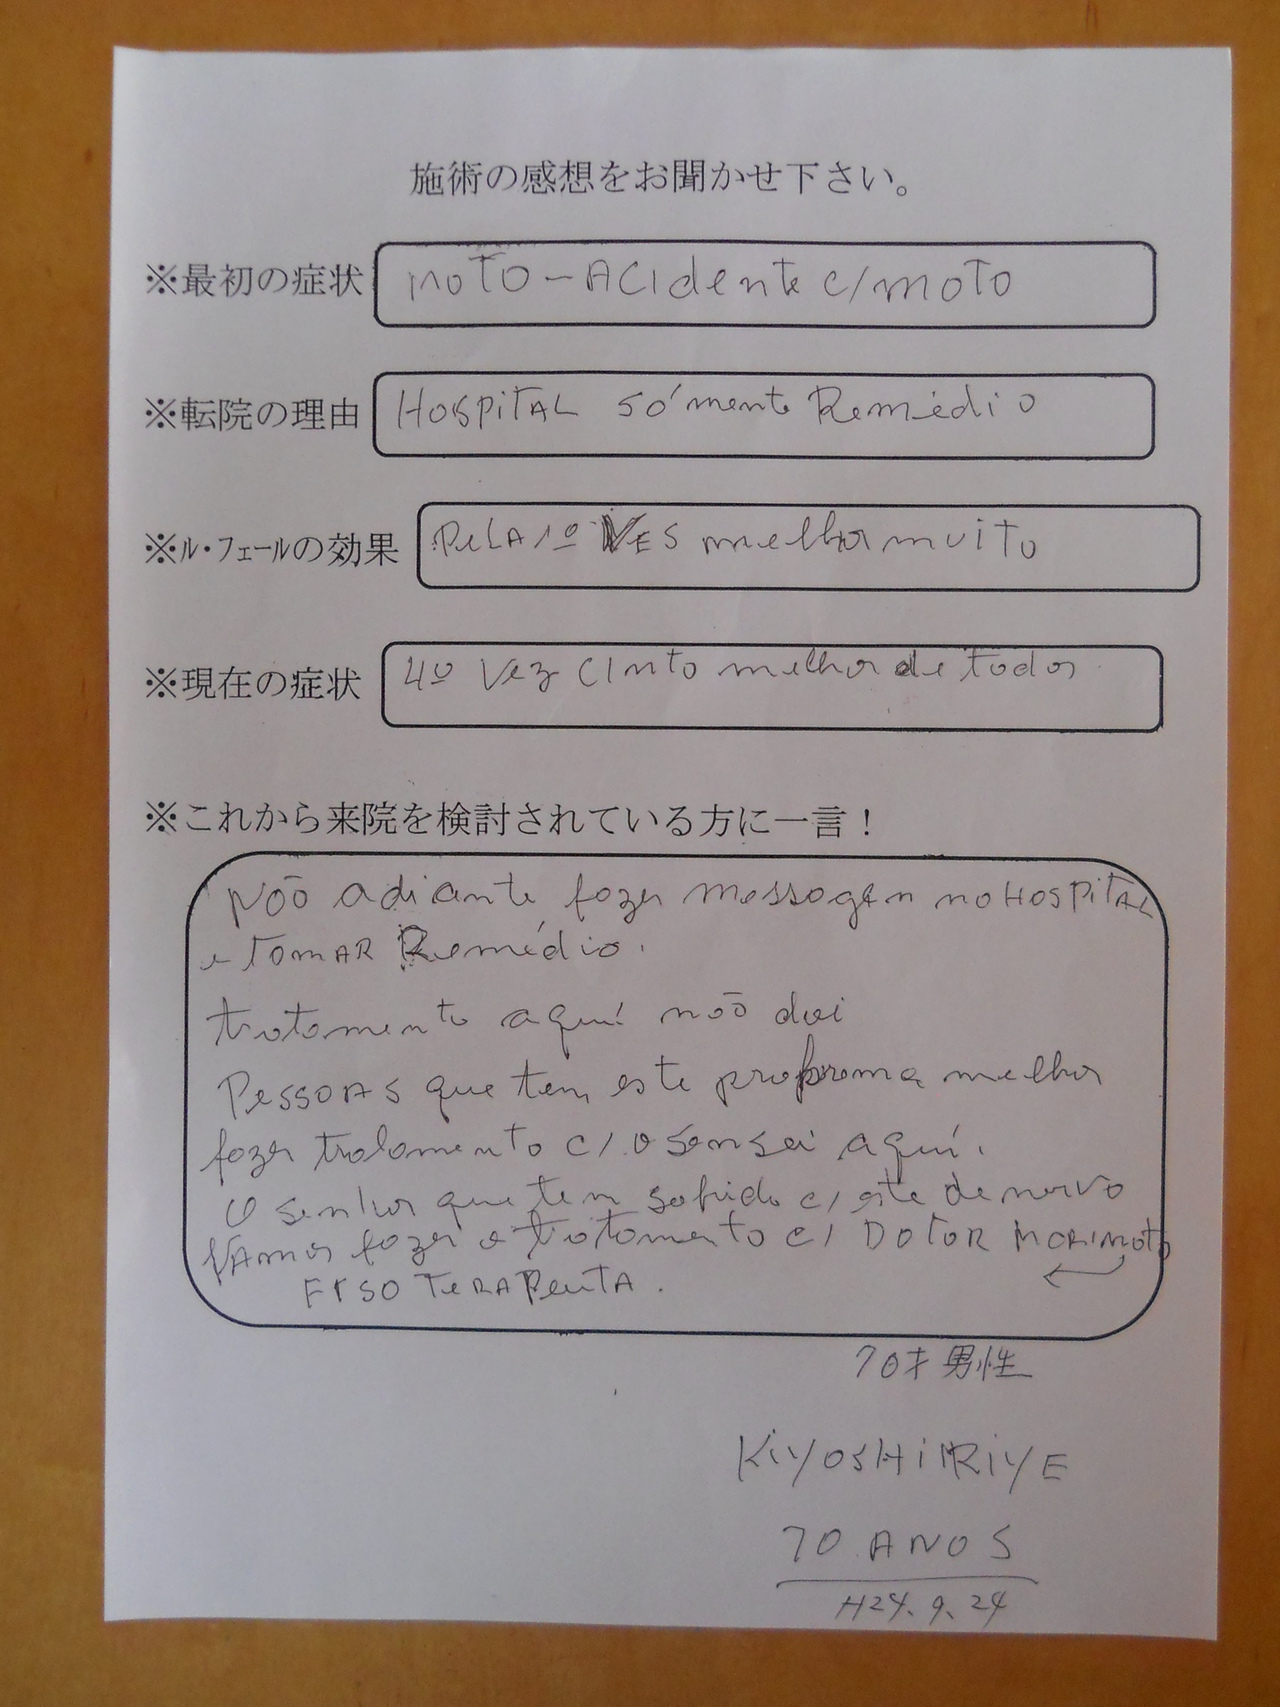 施術の感想をお聞かせ下さい。
※最初の症状 MOTO - ACIdente c/ MOTO
※転院の理由 HOSPITAL só mente Remédio
※ル・フェールの効果 PeLA 1º VES melhor muito
※現在の症状 4º Vez CInto melhor de todos
※これから来院を検討されている方に一言！
Não adiante fazer massagen no HOSPITAL
e TOMAR Remédio.
tratamento aquí não doi
PESSOAS que tem este proprema melhor
fazer tratamento c/ o sensei aquí.
O senhor que tem sofrido c/ este de nervo
VAmos fazer o tratamento c/ DOTOR MORIMOTO
FISO TeRAPeuTA.
70才 男性
KiYOSHi IRiYE
70 ANOS
H24. 9. 24